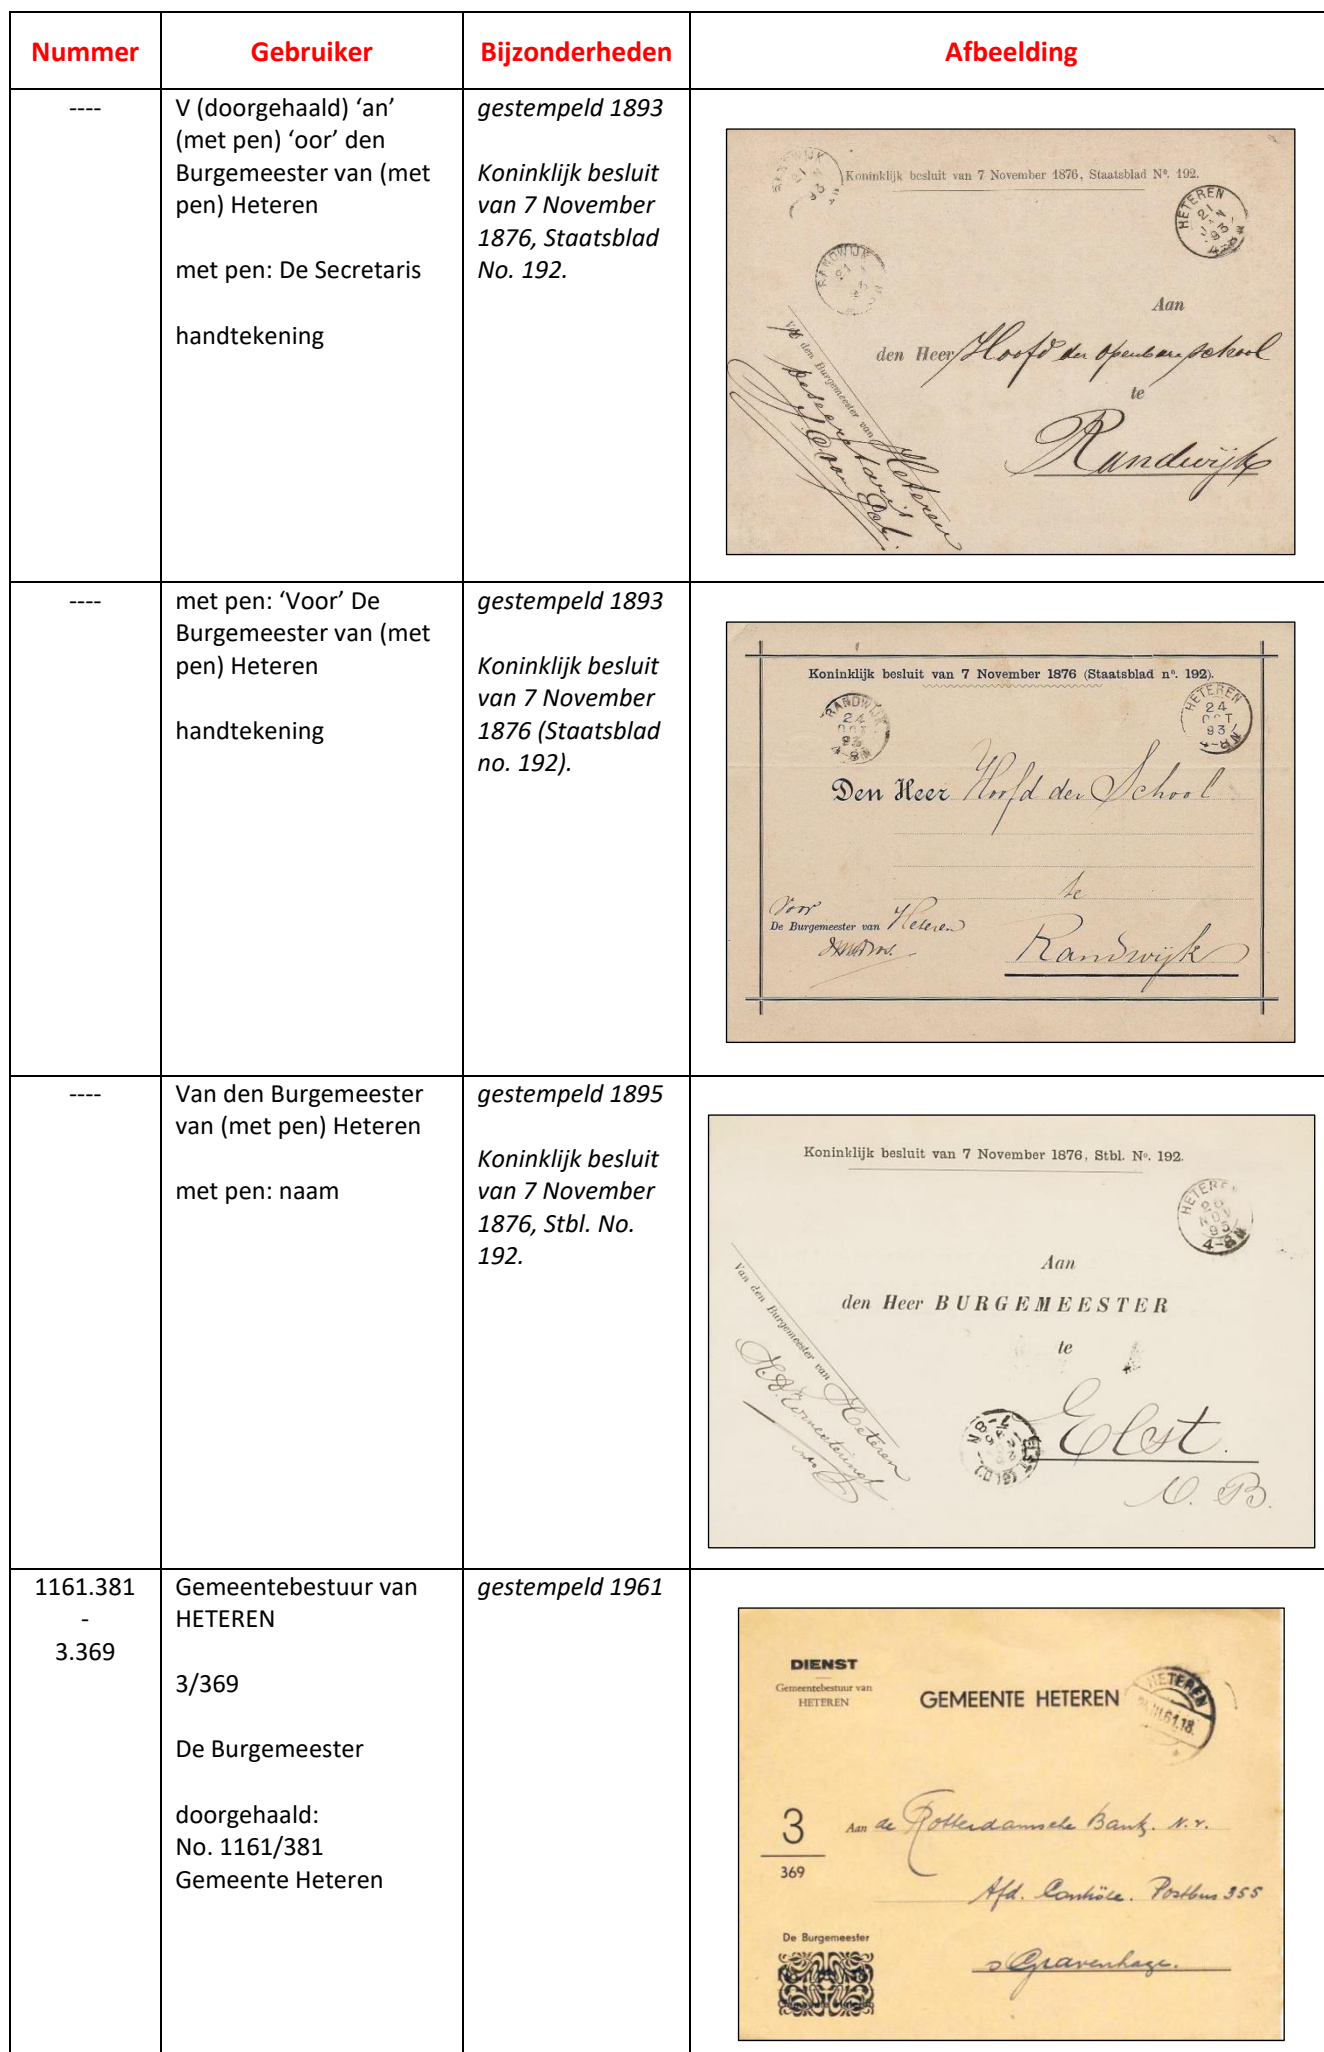 Nummer Gebruiker Bijzonderheden Afbeelding
----
V (doorgehaald) ‘an’
(met pen) ‘oor’ den
Burgemeester van (met
pen) Heteren
met pen: De Secretaris
handtekening
gestempeld 1893
Koninklijk besluit
van 7 November
1876, Staatsblad
No. 192.
Koninklijk besluit van 7 November 1876, Staatsblad Nº. 192.
RANDWIJK
HETEREN
21
93
RANDWIJK
21
Aan
den Heer Hoofd der openbare school
te
Randwijk
den Burgemeester van Heteren
De Secretaris
----
met pen: ‘Voor’ De
Burgemeester van (met
pen) Heteren
handtekening
gestempeld 1893
Koninklijk besluit
van 7 November
1876 (Staatsblad
no. 192).
Koninklijk besluit van 7 November 1876 (Staatsblad nº. 192).
RANDWIJK
24
OCT
93
HETEREN
24
OCT
93
Den Heer Hoofd der School
te
Voor
De Burgemeester van Heteren
Randwijk
----
Van den Burgemeester
van (met pen) Heteren
met pen: naam
gestempeld 1895
Koninklijk besluit
van 7 November
1876, Stbl. No.
192.
Koninklijk besluit van 7 November 1876, Stbl. Nº. 192.
HETEREN
20
NOV
95
4-8N
Aan
den Heer BURGEMEESTER
te
Elst.
N. B.
Van den Burgemeester van Heteren
ELST (GLD.)
1161.381
-
3.369
Gemeentebestuur van
HETEREN
3/369
De Burgemeester
doorgehaald:
No. 1161/381
Gemeente Heteren
gestempeld 1961
DIENST
Gemeentebestuur van
HETEREN
GEMEENTE HETEREN
HETEREN
III.61.18.
3
369
Aan de Rotterdamsche Bank. N.V.
Afd. Contrôle. Postbus 355
s Gravenhage.
De Burgemeester